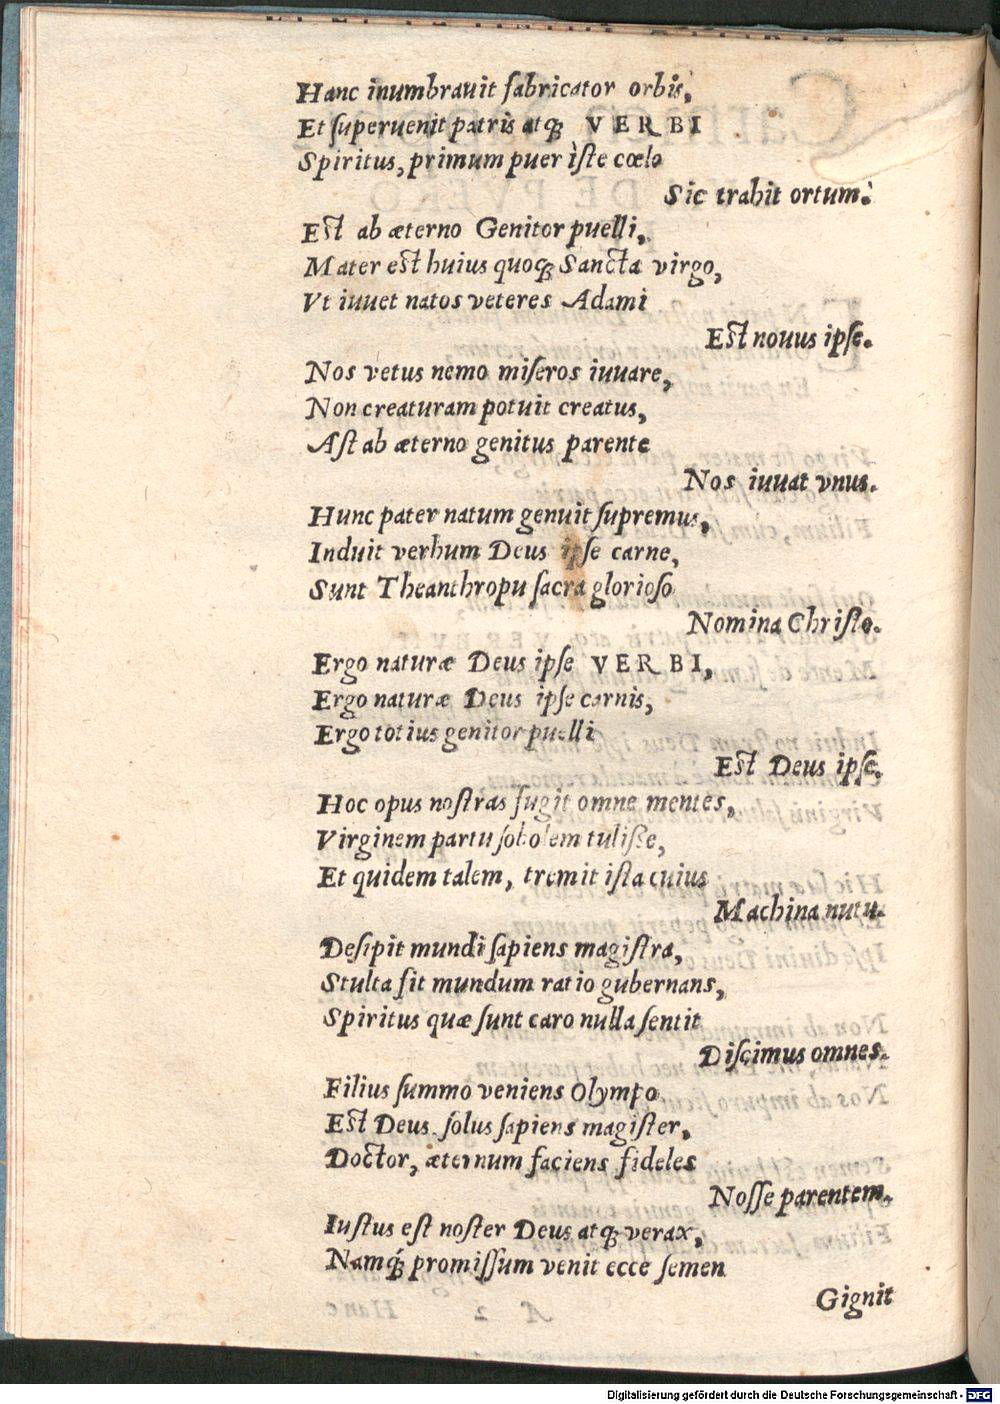 Hanc inumbrauit ſabricator orbis,
Et ſuperuenit patris atq́ꝫ VERBI
Spiritus, primum puer iſte cœlo
Sic trahit ortum.
Eſt ab æterno Genitor puelli,
Mater eſt huius quoqꝫ Sancta virgo,
Vt iuuet natos veteres Adami
Eſt nouus ipſe.
Nos vetus nemo miſeros iuuare,
Non creaturam potuit creatus,
Aſt ab æterno genitus parente
Nos iuuat vnus.
Hunc pater natum genuit ſupremus,
Induit verbum Deus ipſe carne,
Sunt Theanthropu ſacra glorioſo
Nomina Chriſto.
Ergo naturæ Deus ipſe VERBI,
Ergo naturæ Deus ipſe carnis,
Ergo totius genitor puelli
Eſt Deus ipſe.
Hoc opus noſtras fugit omne mentes,
Virginem partu ſobolem tuliſſe,
Et quidem talem, tremit iſta cuius
Machina nutu.
Deſipit mundi ſapiens magiſtra,
Stulta fit mundum ratio gubernans,
Spiritus quæ ſunt caro nulla ſentit
Diſcimus omnes.
Filius ſummo veniens Olympo
Eſt Deus ſolus ſapiens magiſter,
Doctor, æternum faciens fideles
Noſſe parentem.
Iuſtus eſt noſter Deus atqꝫ verax,
Namq́ꝫ promiſſum venit ecce ſemen
Gignit
Digitalisierung gefördert durch die Deutsche Forschungsgemeinschaft - DFG